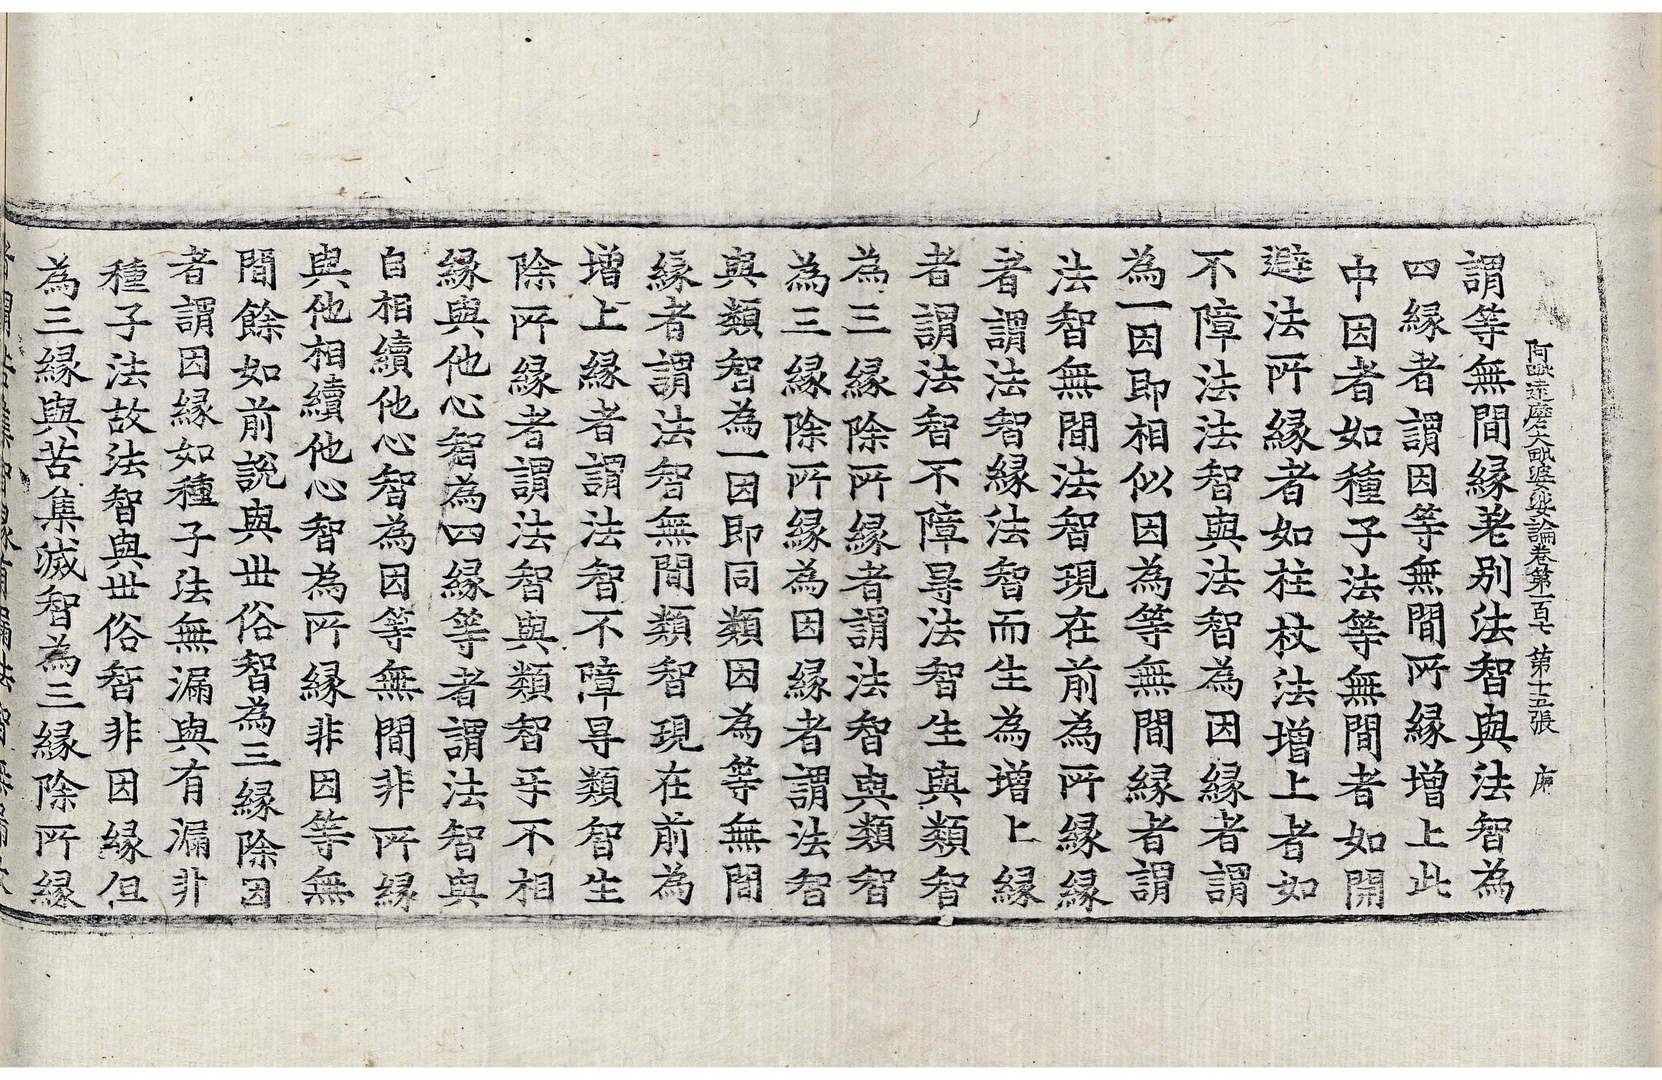 阿毗達磨大毗婆沙論卷第一百七 第十五張
謂等無間縁差別法智與法智為
四縁者謂因等無間所縁增上此
中因者如種子法等無間者如開
避法所縁者如柱杖法增上者如
不障法法智與法智為因縁者謂
為一因即相似因為等無間縁者謂
法智無間法智現在前為所縁縁
者謂法智縁法智而生為增上縁
者謂法智不障㝵法智生與類智
為三縁除所縁者謂法智與類智
為三縁除所縁為因縁者謂法智
與類智為一因即同類因為等無間
縁者謂法智無間類智現在前為
增上縁者謂法智不障㝵類智生
除所縁者謂法智與類智㸦不相
縁與他心智為四縁等者謂法智與
自相續他心智為因等無間非所縁
與他相續他心智為所縁非因等無
間餘如前說與世俗智為三縁除因
者謂因縁如種子法無漏與有漏非
種子法故法智與世俗智非因縁但
為三縁與苦集滅智為三縁除所縁